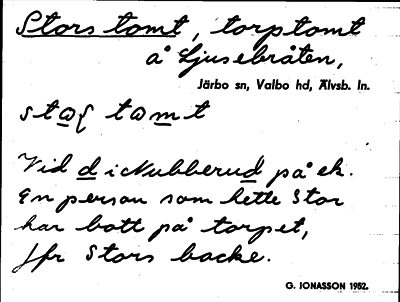 Stors tomt, torptomt
å Ljusebråten,
Järbo sn, Valbo hd, Älvsb. ln.
Vid på ek.
En person som hette Stor
har bott på torpet,
Jfr Stors backe.
G. JONASSON 1952.